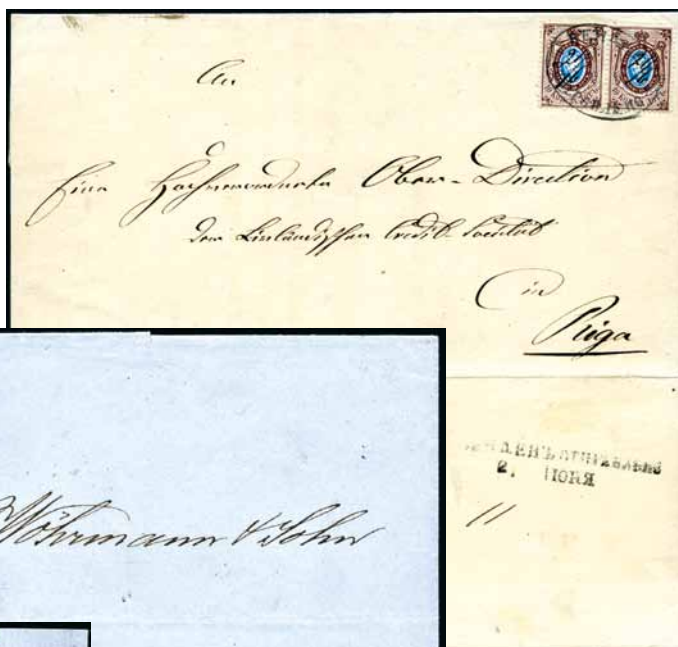 An
Eine Hochverordnete Ober-Direction
der Livländischen Credit-Societät
in
Riga
ОТПРАВЛЕНО
2. ІЮНЯ
11
Wöhrmann & Sohn